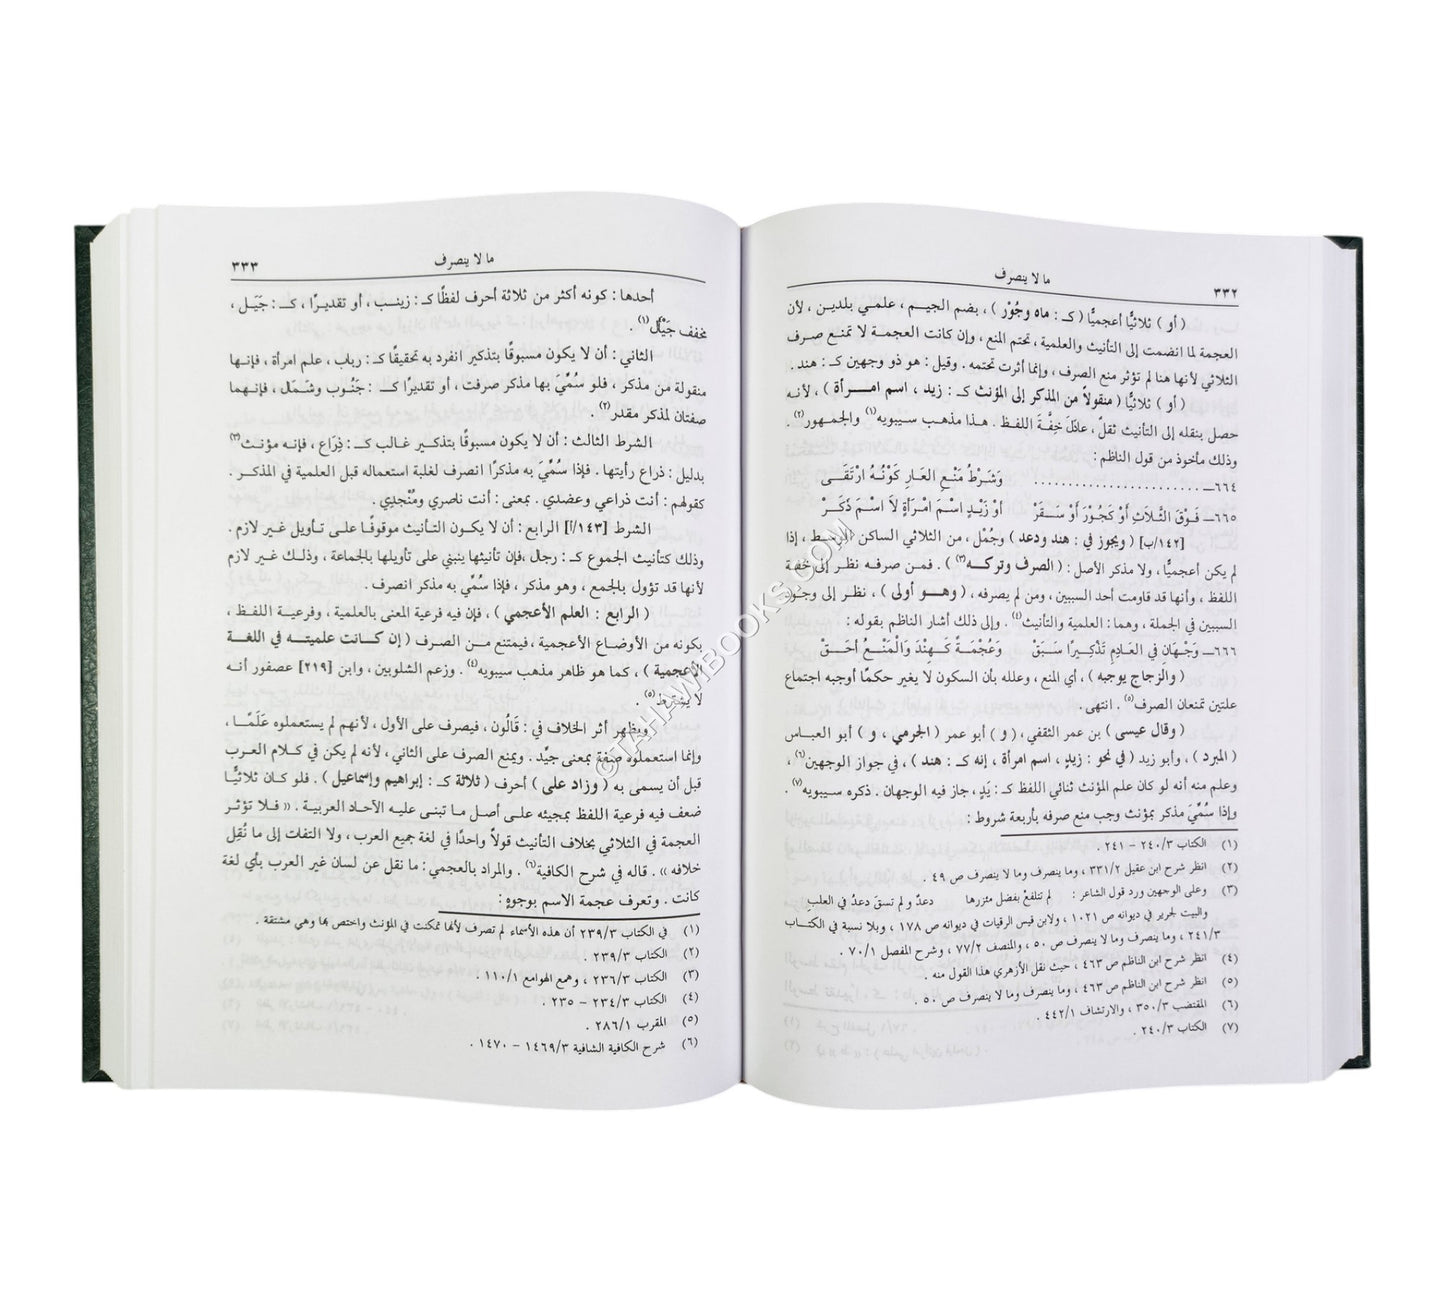 ٣٣٢
ما لا ينصرف
( أو ) ثلاثيًّا أعجميًّا ( كـ : ماه وجُوْر ) ، بضم الجيم ، علمي بلدين ، لأن
العجمة لما انضمت إلى التأنيث والعلمية ، تحتم المنع ، وإن كانت العجمة لا تمنع صرف
الثلاثي لأنها هنا لم تؤثر منع الصرف ، وإنما أثرت تحتمه . وقيل : هو ذو وجهين كـ : هند .
( أو ) ثلاثيًّا ( منقولاً من المذكر إلى المؤنث كـ : زيد ، اسم امـرأة ) ، لأنـه
حصل بنقله إلى التأنيث ثقلٌ ، عادَلَ خِفّةَ اللفظ . هذا مذهب سيبويه(١) والجمهور(٢) .
وذلك مأخوذ من قول الناظم :
٦٦٤ـ ........................ وَشَرْطُ مَنْعِ العَارِ كَوْنُـهُ ارْتَقَـى
٦٦٥ـ فَوْقَ الثَّلاَثِ أوْ كَجُوْرَ أوْ سَـقَرْ أوْ زَيْدٍ اسْمَ امْرَأةٍ لاَ اسْـمَ ذَكَـرْ
[١٤٢/ب] ( ويجوز في : هند ودعد ) وجُمْل ، من الثلاثي الساكن الوسط ، إذا
لم يكن أعجميًّا ، ولا مذكر الأصل : ( الصرف وتركـه(٣) ) . فمـن صرفـه نظـر إلى خفة
اللفظ ، وأنها قد قاومت أحد السببين ، ومن لم يصرفه ، ( وهـو أولى ) ، نظـر إلى وجود
السببين في الجملة ، وهما : العلمية والتأنيث(٤) . وإلى ذلك أشار الناظم بقوله :
٦٦٦ـ وَجْهَانِ في العَادِمِ تَذْكِيرًا سَـبَقْ وَعُجْمَةً كَـهِنْدَ وَالْمَنْـعُ أحَـقّ
( والزجاج يوجبه ) ، أي المنع ، وعلله بأن السكون لا يغير حكمًا أوجبه اجتماع
علتين تمنعان الصرف(٥) . انتهى .
( وقال عيسى ) بن عمر الثقفي ، ( و ) أبو عمر ( الجرمي ، و ) أبو العبـاس
( المبرد ) ، وأبو زيد ( في نحو : زيدٍ ، اسم امرأة ، إنه كـ : هند ) ، في جواز الوجهين(٦) ،
وعلم منه أنه لو كان علم المؤنث ثنائي اللفظ كـ : يَدٍ ، جاز فيه الوجهان . ذكره سـيبويه(٧) .
وإذا سُمِّيَ مذكر بمؤنث وجب منع صرفه بأربعة شروط :
(١) الكتاب ٢٤٠/٣ – ٢٤١ .
(٢) انظر شرح ابن عقيل ٣٣١/٢ ، وما ينصرف وما لا ينصرف ص ٤٩ .
(٣) وعلى الوجهين ورد قول الشاعر : لم تتلفع بفضل مئزرها دعدٌ ولم تسقَ دعدُ في العلبِ
والبيت لجرير في ديوانه ص ١٠٢١ ، ولابن قيس الرقيات في ديوانه ص ١٧٨ ، وبلا نسبة في الكتـاب
٢٤١/٣ ، وما ينصرف وما لا ينصرف ص ٥٠ ، والمنصف ٧٧/٢ ، وشرح المفصل ٧٠/١ .
(٤) انظر شرح ابن الناظم ص ٤٦٣ ، حيث نقل الأزهري هذا القول منه .
(٥) انظر شرح ابن الناظم ص ٤٦٣ ، وما ينصرف وما لا ينصرف ص ٥٠ .
(٦) المقتضب ٣٥٠/٣ ، والارتشاف ٤٤٢/١ .
(٧) الكتاب ٢٤٠/٣ .
ما لا ينصرف
٣٣٣
أحدها : كونه أكثر من ثلاثة أحرف لفظًا كـ : زينـب ، أو تقديـرًا ، كـ : جَيَـل ،
مخفف جَيْأل(١) .
الثاني : أن لا يكون مسبوقًا بتذكير انفرد به تحقيقًا كـ : رباب ، علم امرأة ، فإنهـا
منقولة من مذكر ، فلو سُمِّيَ بها مذكر صرفت ، أو تقديرًا كـ : جَنُوب وشَمَال ، فإنـهما
صفتان لمذكر مقدر(٢) .
الشرط الثالث : أن لا يكون مسبوقًا بتذكـير غـالب كـ : ذِرَاع ، فإنـه مؤنـث(٣)
بدليل : ذراع رأيتها . فإذا سُمِّيَ به مذكرًا انصرف لغلبة استعماله قبل العلمية في المذكـر .
كقولهم : أنت ذراعي وعضدي . بمعنى : أنت ناصري ومُنْجدي .
الشرط [١٤٣/أ] الرابع : أن لا يكـون التـأنيث موقوفًـا علـى تـأويل غـير لازم .
وذلك كتأنيث الجموع كـ : رجال ،فإن تأنيثها ينبني على تأويلها بالجماعة ، وذلـك غـير لازم
لأنها قد تؤول بالجمع ، وهو مذكر ، فإذا سُمِّي به مذكر انصرف .
( الرابع : العلم الأعجمي ) ، فإن فيه فرعية المعنى بالعلمية ، وفرعيـة اللفـظ ،
بكونه من الأوضاع الأعجمية ، فيمتنع مـن الصـرف ( إن كـانت علميتـه في اللغـة
الأعجمية ) ، كما هو ظاهر مذهب سيبويه(٤) . وزعم الشلوبين ، وابن [٢١٩] عصفور أنـه
لا يشترط(٥) .
ويظهر أثر الخلاف في : قَالُون ، فيصرف على الأول ، لأنهم لم يستعملوه عَلَمًـا ،
وإنما استعملوه صفة بمعنى جيِّد . ويمنع الصرف على الثاني ، لأنه لم يكن في كـلام العرب
قبل أن يسمى به ( وزاد على ) أحرف ( ثلاثة كـ : إبراهيم وإسماعيل ) . فلو كـان ثلاثيًّـا
ضعف فيه فرعية اللفظ بمجيئه علـى أصـل مـا تبنـى عليـه الآحـاد العربيـة . « فـلا تؤثـر
العجمة في الثلاثي بخلاف التأنيث قولاً واحدًا في لغة جميع العرب ، ولا التفات إلى ما نُقِل
خلافه » . قاله في شرح الكافية(٦) . والمراد بالعجمي : ما نقل عن لسان غير العرب بأي لغة
كانت . وتعرف عجمة الاسم بوجوهٍ :
(١) في الكتاب ٢٣٩/٣ أن هذه الأسماء لم تصرف لأنها تمكنت في المؤنث واختص بها وهي مشتقة .
(٢) الكتاب ٢٣٩/٣ .
(٣) الكتاب ٢٣٦/٣ ، وهمع الهوامع ١١٠/١ .
(٤) الكتاب ٢٣٤/٣ – ٢٣٥ .
(٥) المقرب ٢٨٦/١ .
(٦) شرح الكافية الشافية ١٤٦٩/٣ – ١٤٧٠ .
© TAHAWIBOOKS.COM